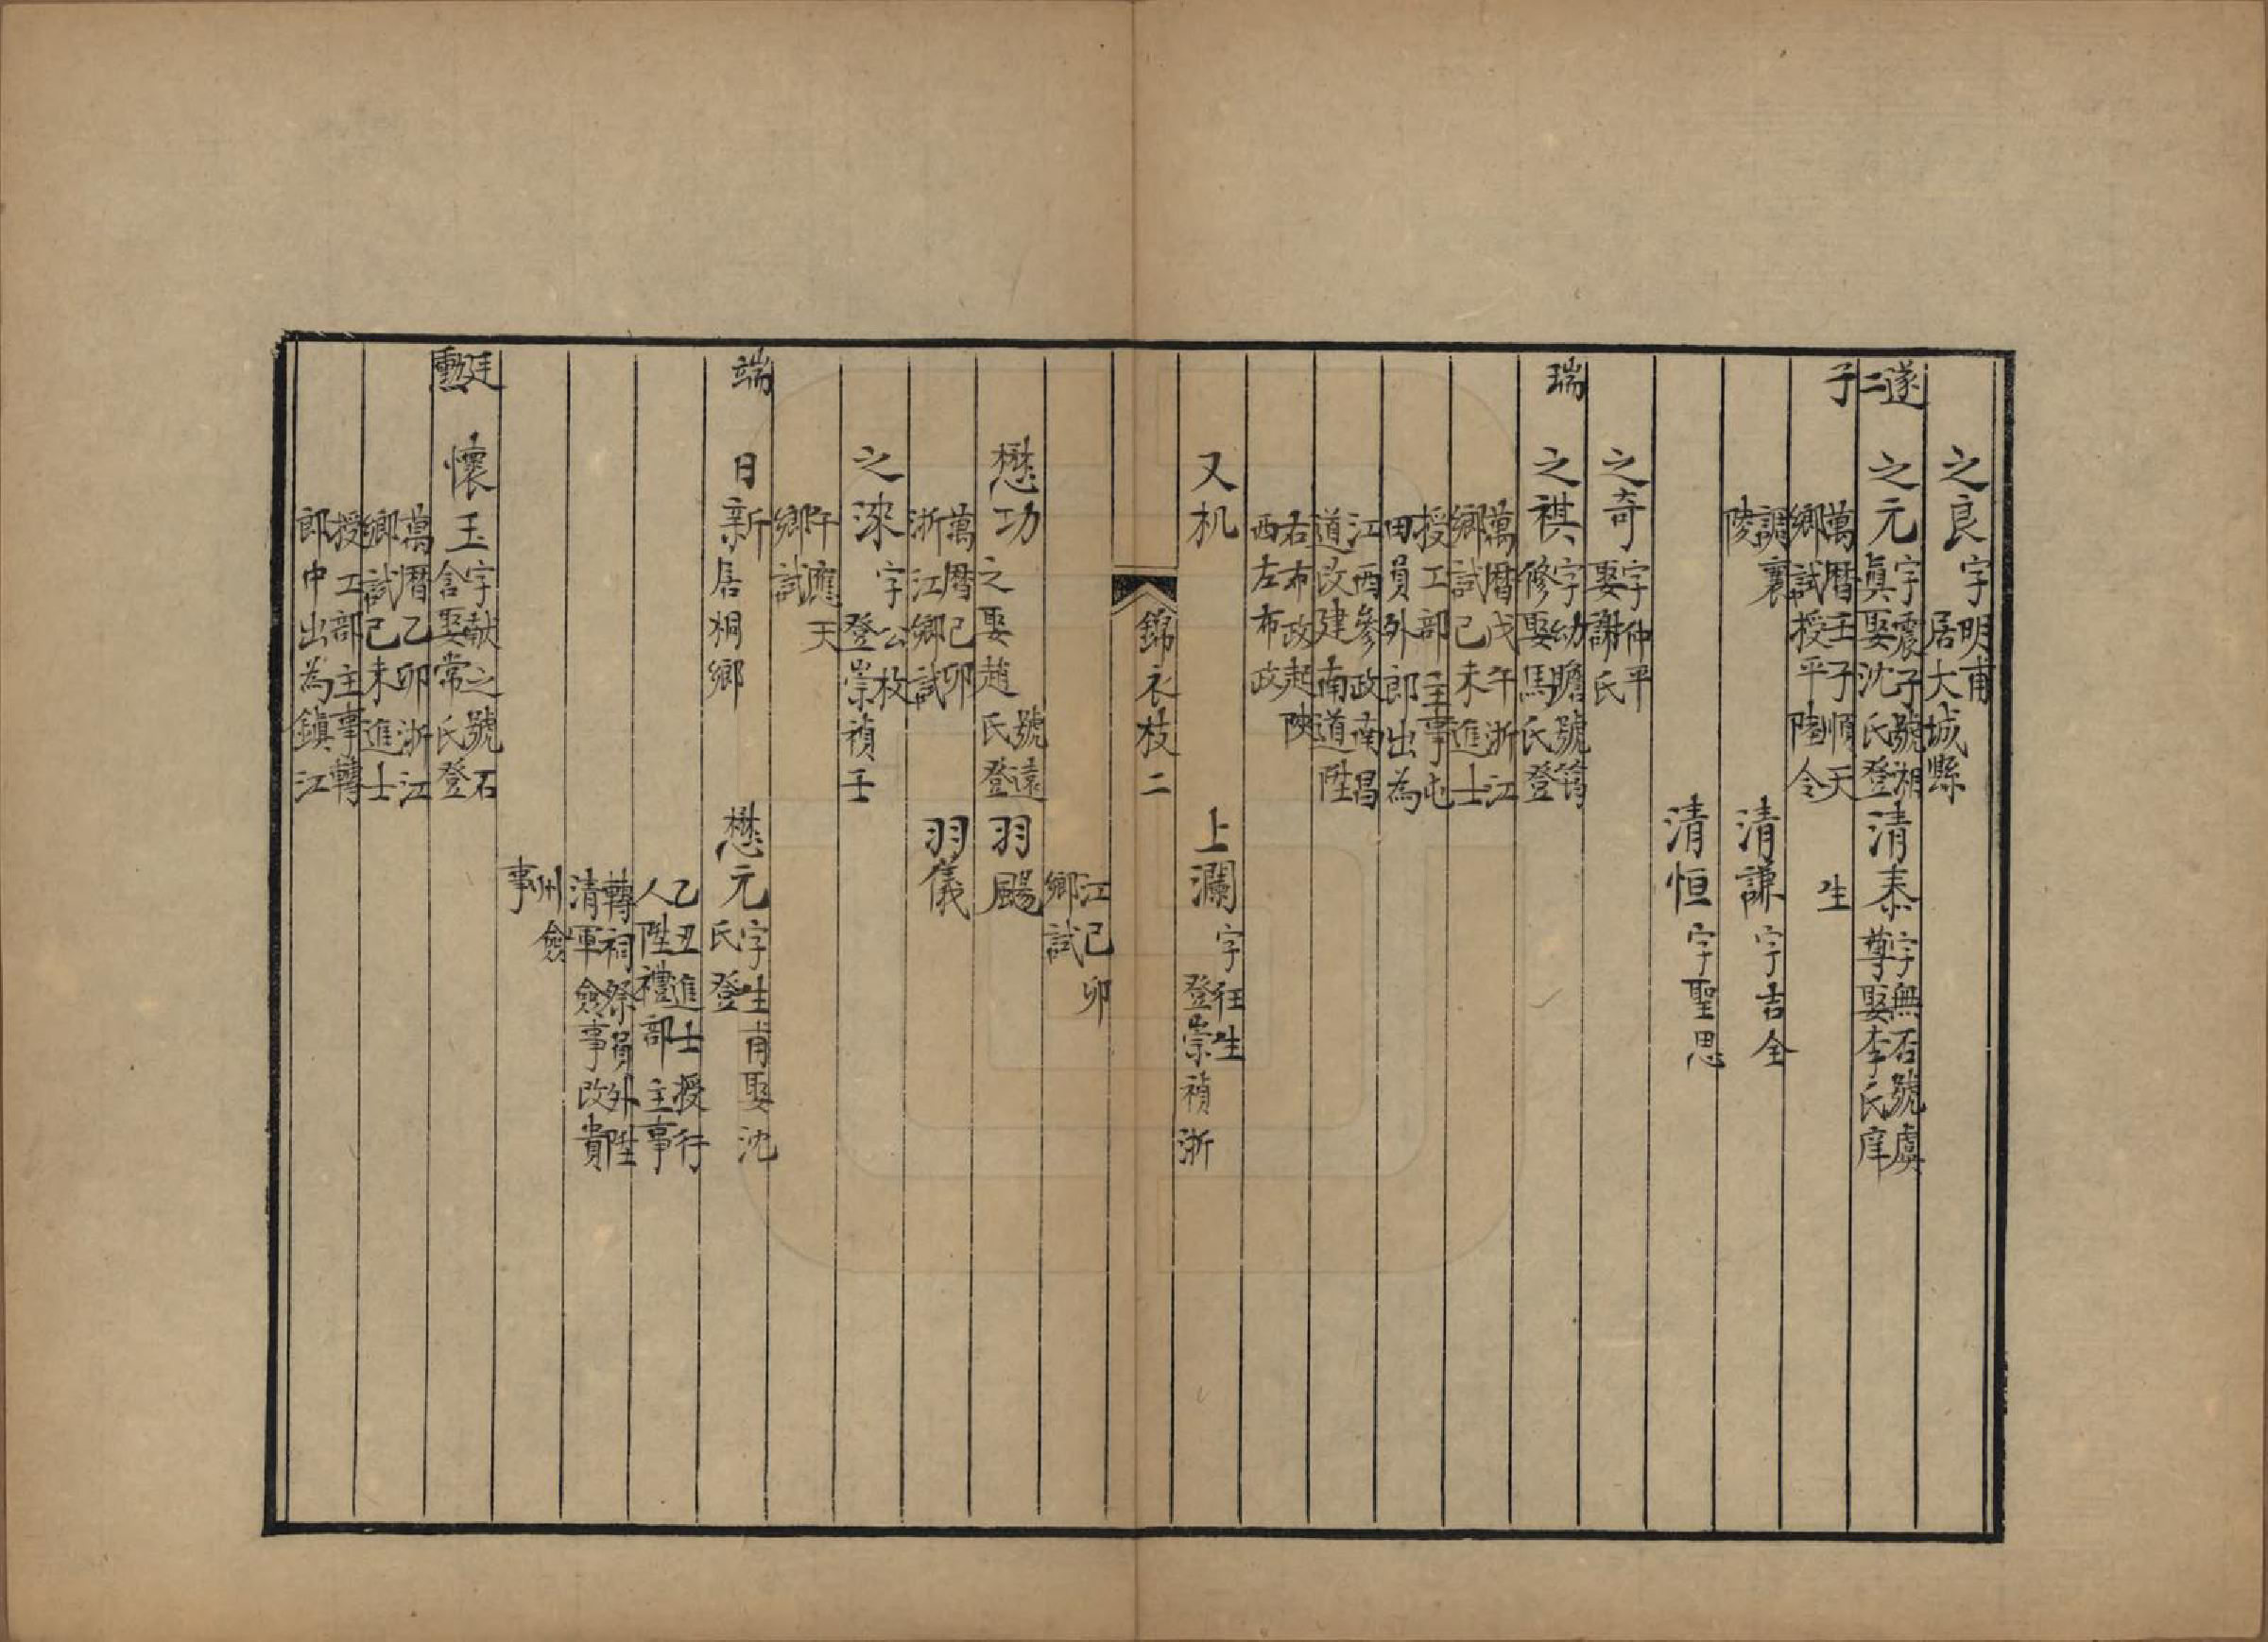 之良字明甫居大城縣
遂二子
之元字震子號湘真娶沈氏登
萬曆壬子順天鄉試授平陸令
調襄陵
清泰字無石號虞尊娶李氏庠
生
清謙字吉全
清恒字聖思
之奇字仲平娶謝氏
瑞
之祺字幼瞻號篤修娶馬氏登
萬曆戊午浙江鄉試己未進士
授工部主事屯田員外郎出為
江西參政南昌道改建南道陞
右布政起陝西左布政
又机
上瀾字狂生登崇禎浙
錦衣枝二
江己卯鄉試
懋功號遠之娶趙氏登
萬曆己卯浙江鄉試
羽颺
羽儀
之溁字公枚登崇禎壬
午應天鄉試
端
日新居桐鄉
懋元字生甫娶沈氏登
乙丑進士授行人陞禮部主事
轉祠祭員外陞清軍僉事改貴
州僉事
廷勳
懷玉字献之號石含娶常氏登
萬曆乙卯浙江鄉試己未進士
授工部主事轉郎中出為鎮江